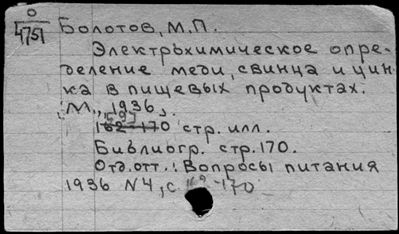 О
4751
Болотов, М.П.
Электрохимическое опре-
деление меди, свинца и цин-
ка в пищевых продуктах.
М., 1936,
162-170 стр. илл.
Библиогр. стр. 170.
Отд. отт.: Вопросы питания
1936 N4, с. 162-170